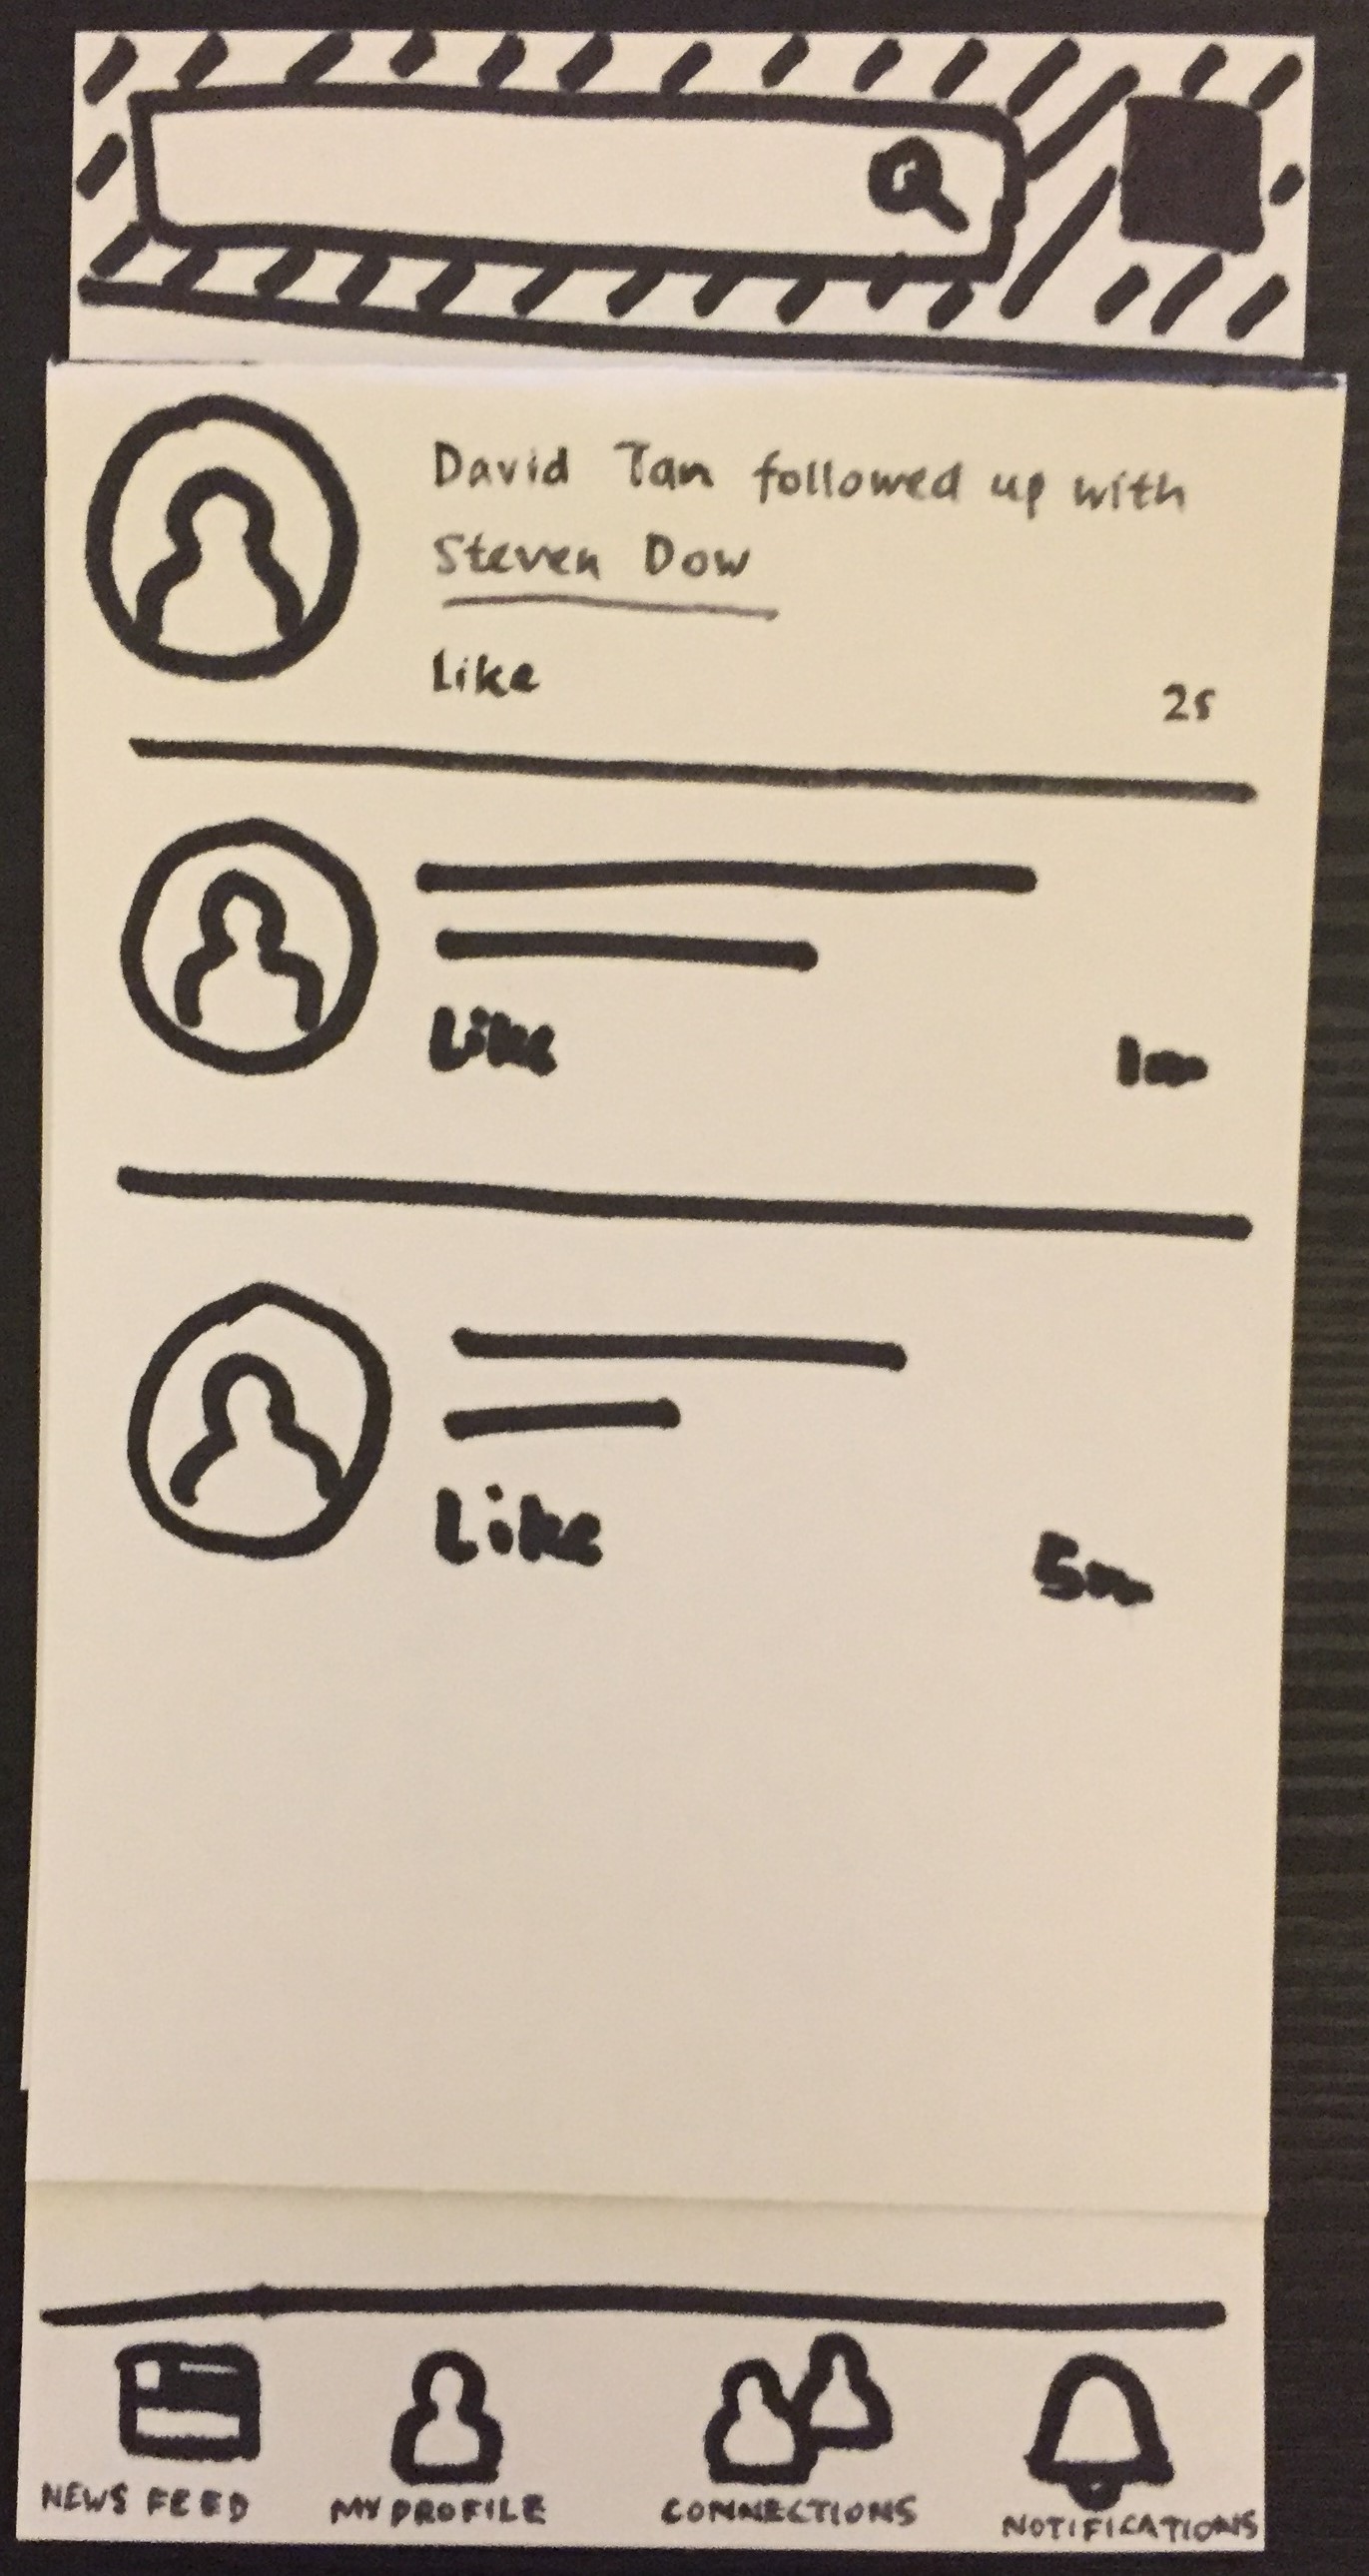 David Tan followed up with
Steven Dow
Like
2s
Like
1m
Like
5m
NEWS FEED
MY PROFILE
CONNECTIONS
NOTIFICATIONS